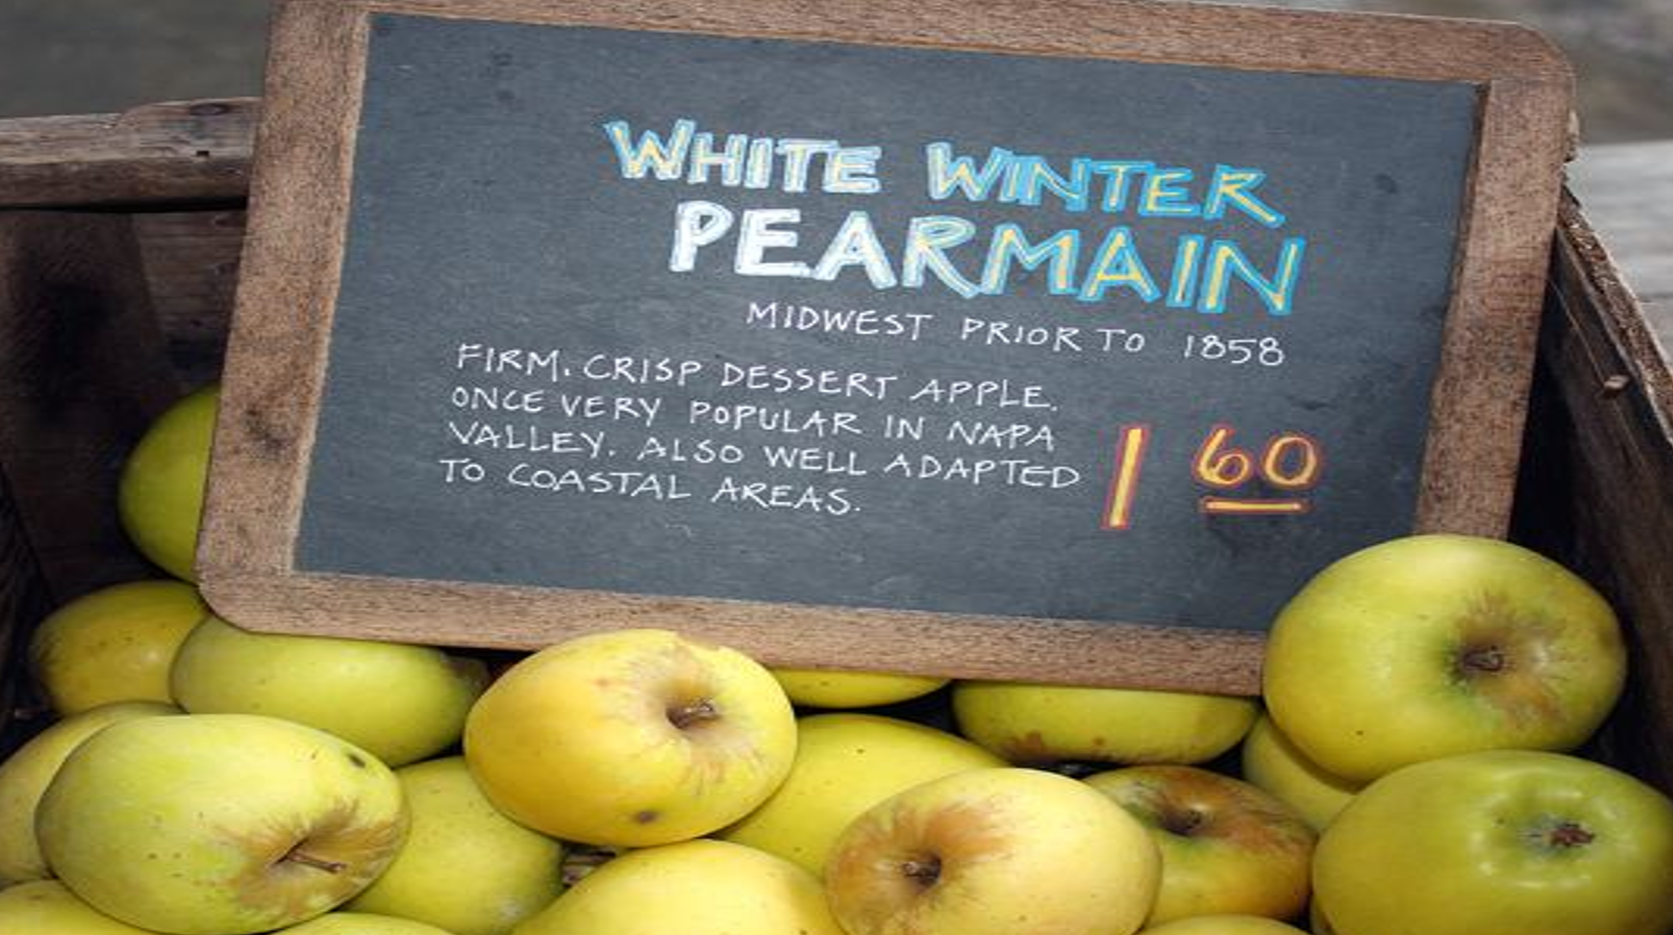 WHITE WINTER
PEARMAIN
MIDWEST PRIOR TO 1858
FIRM, CRISP DESSERT APPLE.
ONCE VERY POPULAR IN NAPA
VALLEY. ALSO WELL ADAPTED
TO COASTAL AREAS.
1 60